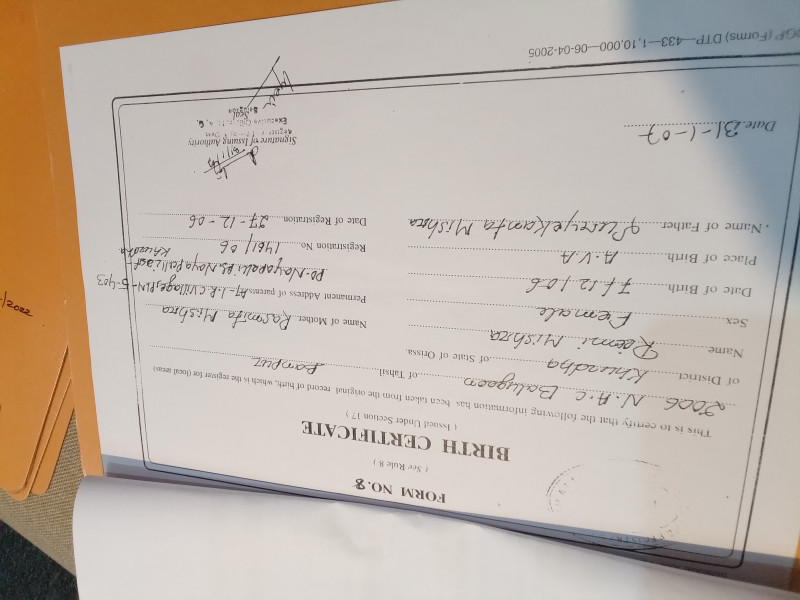 FORM NO.8
( See Rule 8 )
BIRTH CERTIFICATE
( Issued Under Section 17 )
This is to certify that the following information has been taken from the original record of birth, which is the register for (local area)
2006 N.A.C Balugaon of Tahsil
of District Khurdha of State of Orissa.
Name Mishra
Sex Female
Date of Birth 12/06
Place of Birth A.V.A
Name of Father Mishra
Name of Mother Rasmita Mishra
Permanent Address of parents At- I.R.C Village, PIN-5-403
PO-Nayapalli PS. Nayapalli Dist- Khurdha
Registration No. 1461/06
Date of Registration 27-12-06
Signature of Issuing Authority
Seal
Date. 31-1-07
(Forms) DTP-433-1,10,000-06-04-2005
/2022